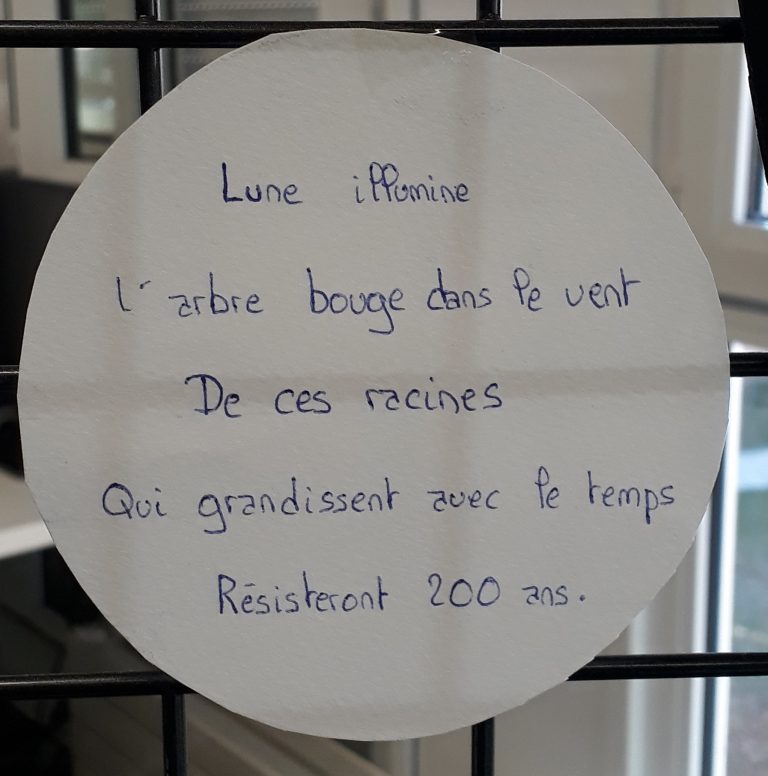 Lune illumine
l'arbre bouge dans le vent
De ces racines
Qui grandissent avec le temps
Résisteront 200 ans.